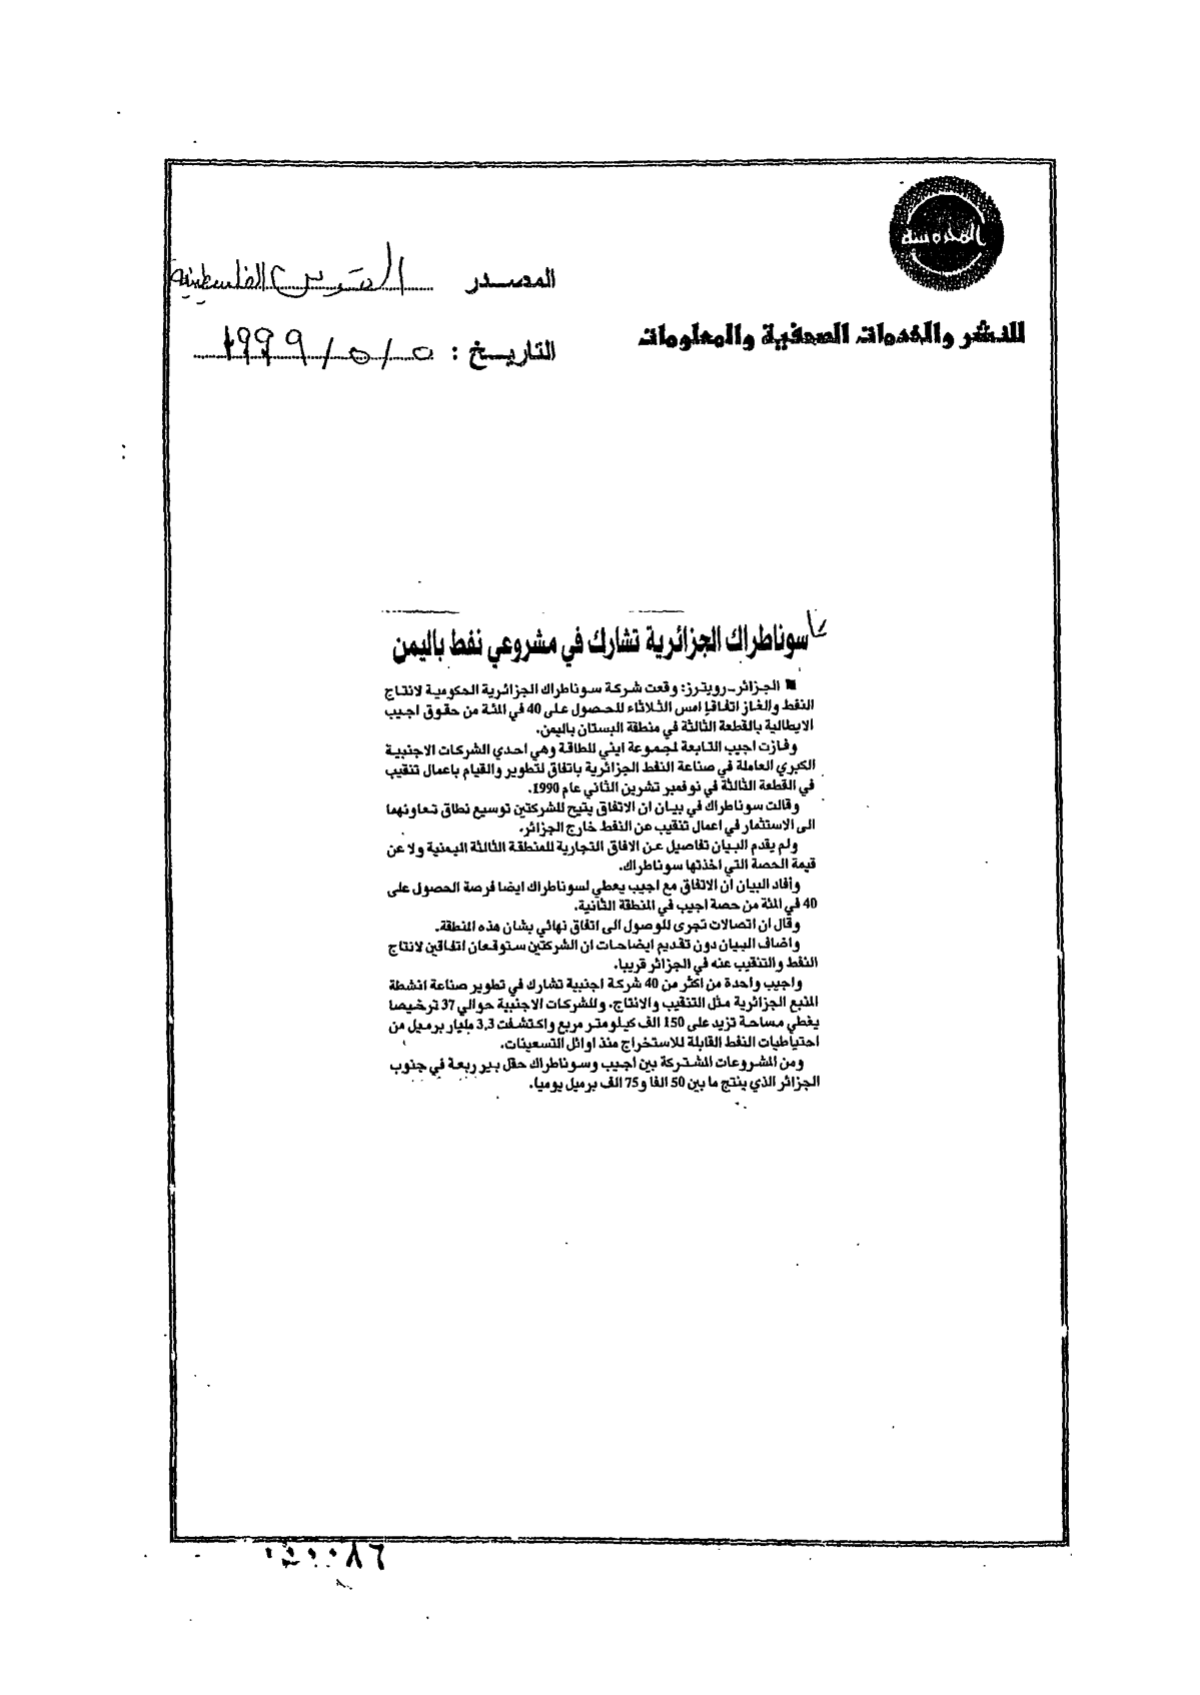 المحروسة
للنشر والخدمات الصحفية والمعلومات
المصدر القدس الفلسطينية
التاريخ : ٥ / ٥ / ١٩٩٩
سوناطراك الجزائرية تشارك في مشروعي نفط باليمن
■ الجزائر-رويترز: وقعت شركة سوناطراك الجزائرية الحكومية لانتاج
النفط والغاز اتفاقا امس الثلاثاء للحصول على 40 في المئة من حقوق اجيب
الايطالية بالقطعة الثالثة في منطقة البستان باليمن.
وفازت اجيب التابعة لمجموعة ايني للطاقة وهي احدي الشركات الاجنبية
الكبري العاملة في صناعة النفط الجزائرية باتفاق لتطوير والقيام باعمال تنقيب
في القطعة الثالثة في نوفمبر تشرين الثاني عام 1990.
وقالت سوناطراك في بيان ان الاتفاق يتيح للشركتين توسيع نطاق تعاونهما
الى الاستثمار في اعمال تنقيب عن النفط خارج الجزائر.
ولم يقدم البيان تفاصيل عن الافاق التجارية للمنطقة الثالثة اليمنية ولا عن
قيمة الحصة التي اخذتها سوناطراك.
وأفاد البيان ان الاتفاق مع اجيب يعطي لسوناطراك ايضا فرصة الحصول على
40 في المئة من حصة اجيب في المنطقة الثانية.
وقال ان اتصالات تجرى للوصول الى اتفاق نهائي بشان هذه المنطقة.
واضاف البيان دون تقديم ايضاحات ان الشركتين ستوقعان اتفاقين لانتاج
النفط والتنقيب عنه في الجزائر قريبا.
واجيب واحدة من اكثر من 40 شركة اجنبية تشارك في تطوير صناعة انشطة
المنبع الجزائرية مثل التنقيب والانتاج. وللشركات الاجنبية حوالي 37 ترخيصا
يغطي مساحة تزيد على 150 الف كيلومتر مربع واكتشفت 3,3 مليار برميل من
احتياطيات النفط القابلة للاستخراج منذ اوائل التسعينات.
ومن المشروعات المشتركة بين اجيب وسوناطراك حقل بير ربعة في جنوب
الجزائر الذي ينتج ما بين 50 الفا و75 الف برميل يوميا.